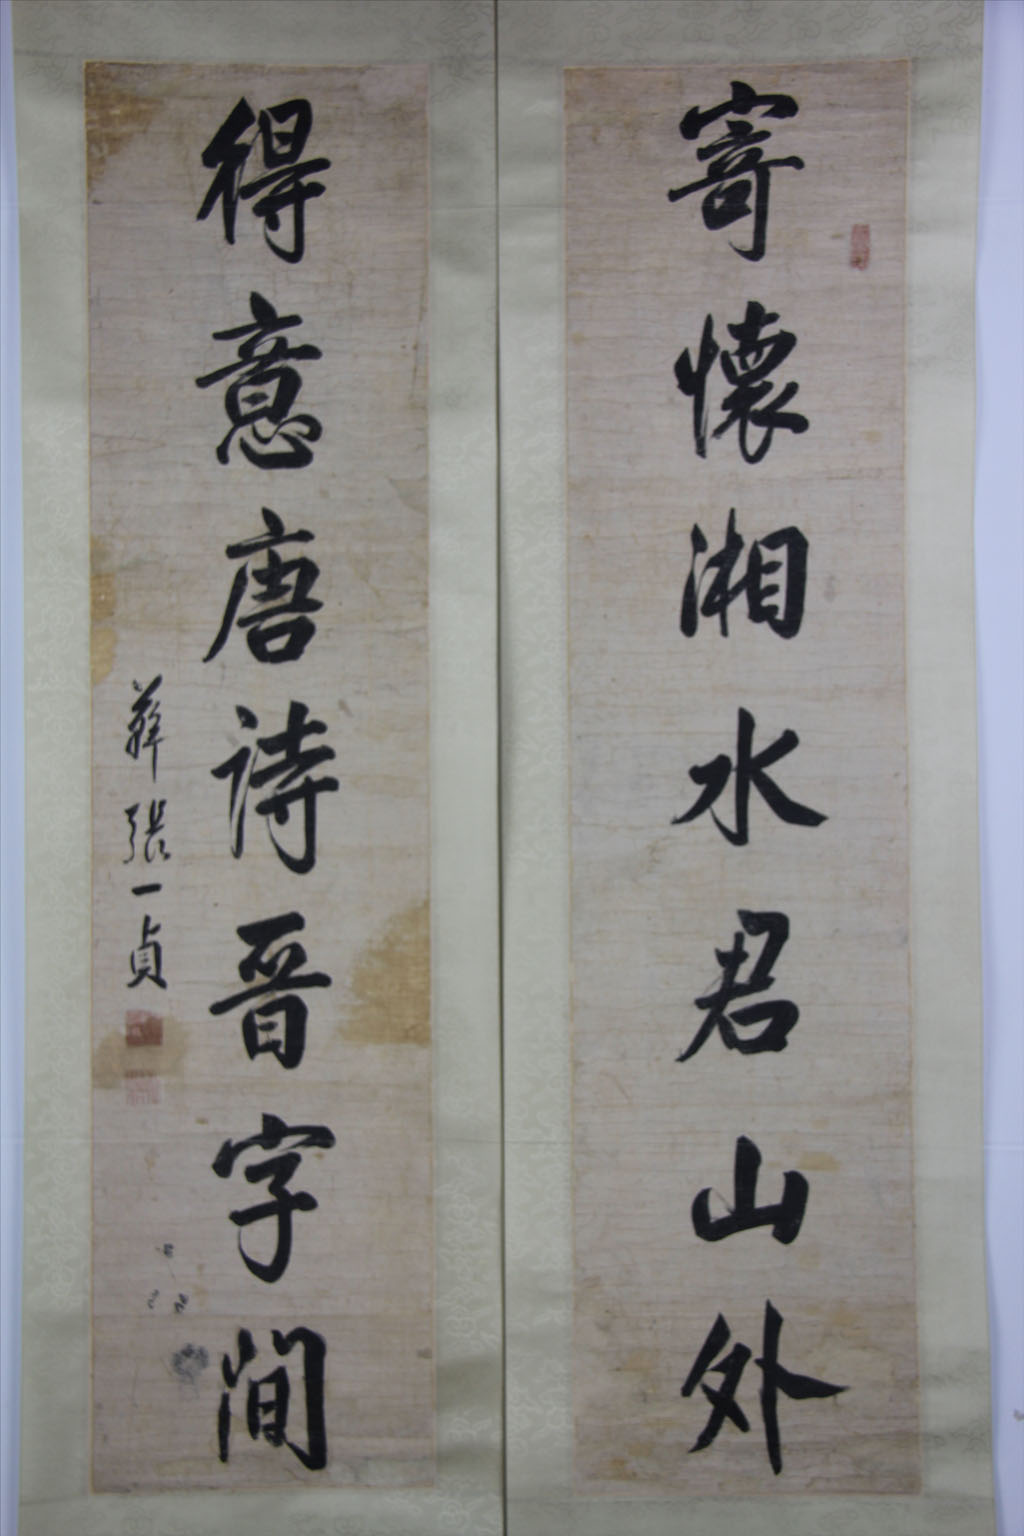 寄懷湘水君山外
得意唐詩晋字間
張一貞